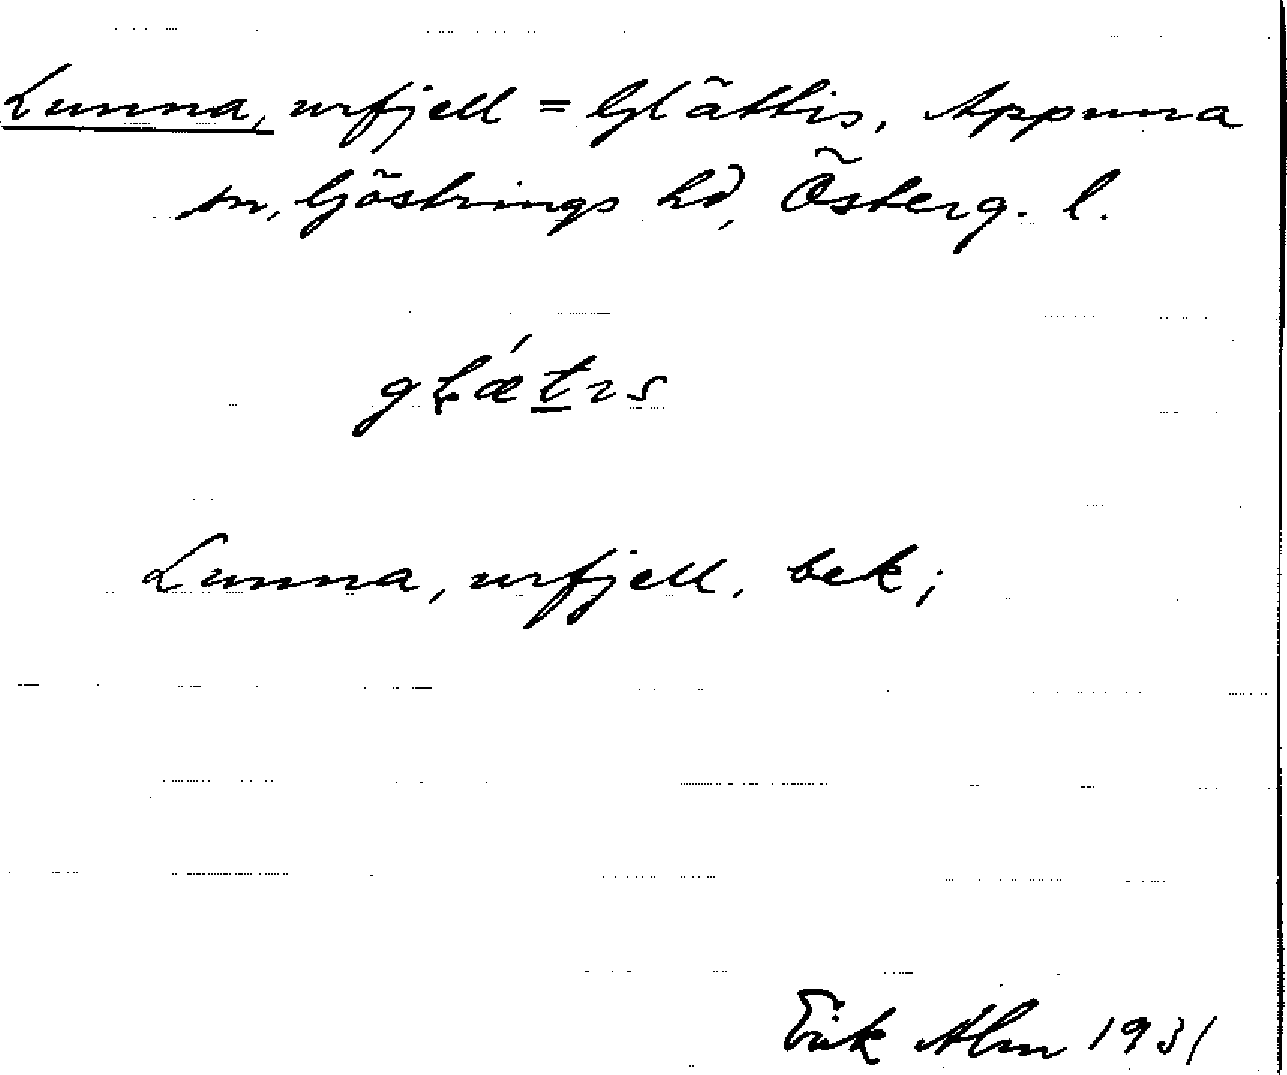 Lunna, urfjell = Glättis, Appuna
sn, Göstrings hd, Österg. l.
gɫǽt̲ıs
Lunna, urfjell, bek;
Erik Alm 1931